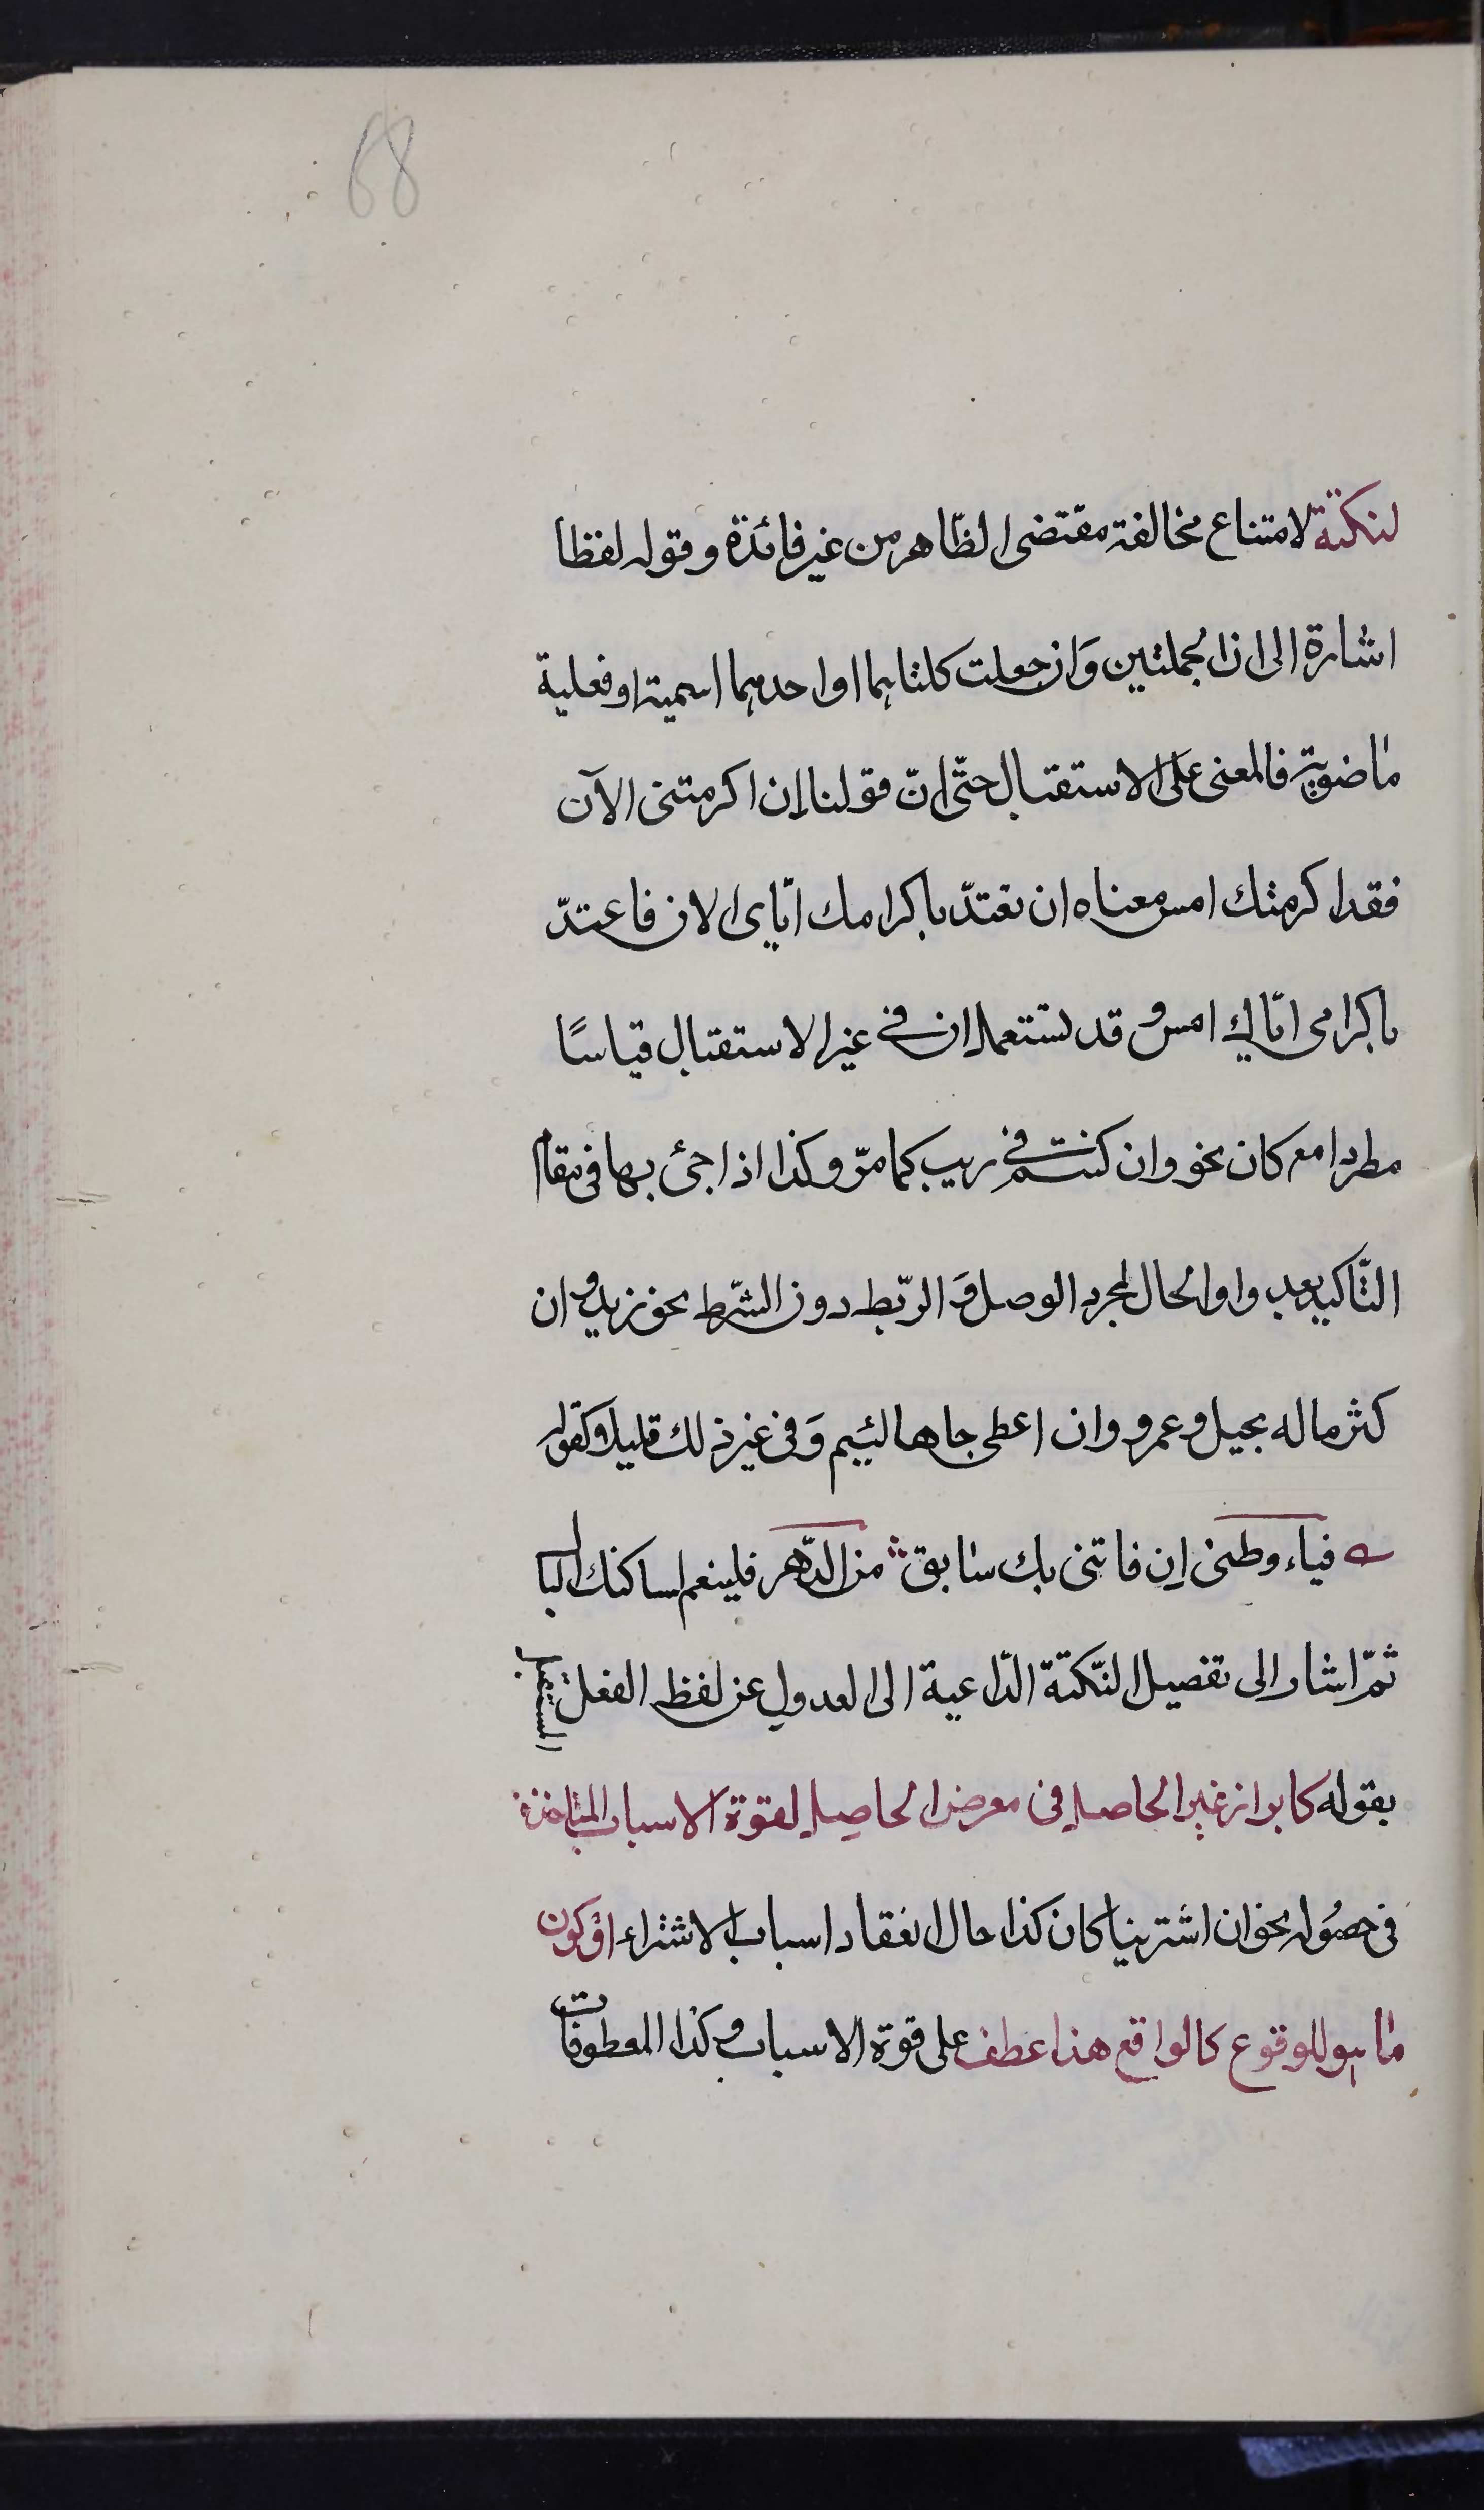 68
لنكتة لامتناع مخالفة مقتضى الظّاهر من غير فائدة وقوله لفظا
اشارة الى ان الجملتين وَان جعلت كلتاهما او احدهما اسمية او فعلية
ماضوية فالمعنى على الاستقبال حتّى انّ قولنا إن اكرمتنى الآن
فقد اكرمتك امس معناه ان تعتدّ باكرامك ايّاى الان فاعتدّ
باكرامى ايّاك امس و قد تستعمل ان فى غير الاستقبال قياسًا
مطردا مع كان نحو وان كنتم فى ريب كما مرّ وكذا اذا جئ بها فى مقام
التّاكيد بعد واو الحال لمجرد الوصل وَ الربّط دون الشّرط نحو زيد و ان
كثر ماله بخيل و عمرو وان اعطى جاها لئيم وَ فى غير ذلك قليلا كقوله
فياء وطنى اِن فاتنى بك سابق من الدّهر فلينعم لساكنك البا
ثمّ اشار الى تفصيل النّكتة الدّاعية الى العدول عن لفظ الفعل المستقبل
بقوله كابراز غير الحاصل فى معرض الحاصل لقوة الاسباب المتاخذة
فى حصُوله نحو ان اشترينا كان كذا حال انعقاد اسباب الاشتراء اوْ كون
ما هو للوقوع كالواقع هذا عطف على قوة الاسباب و كذا المعطوفات